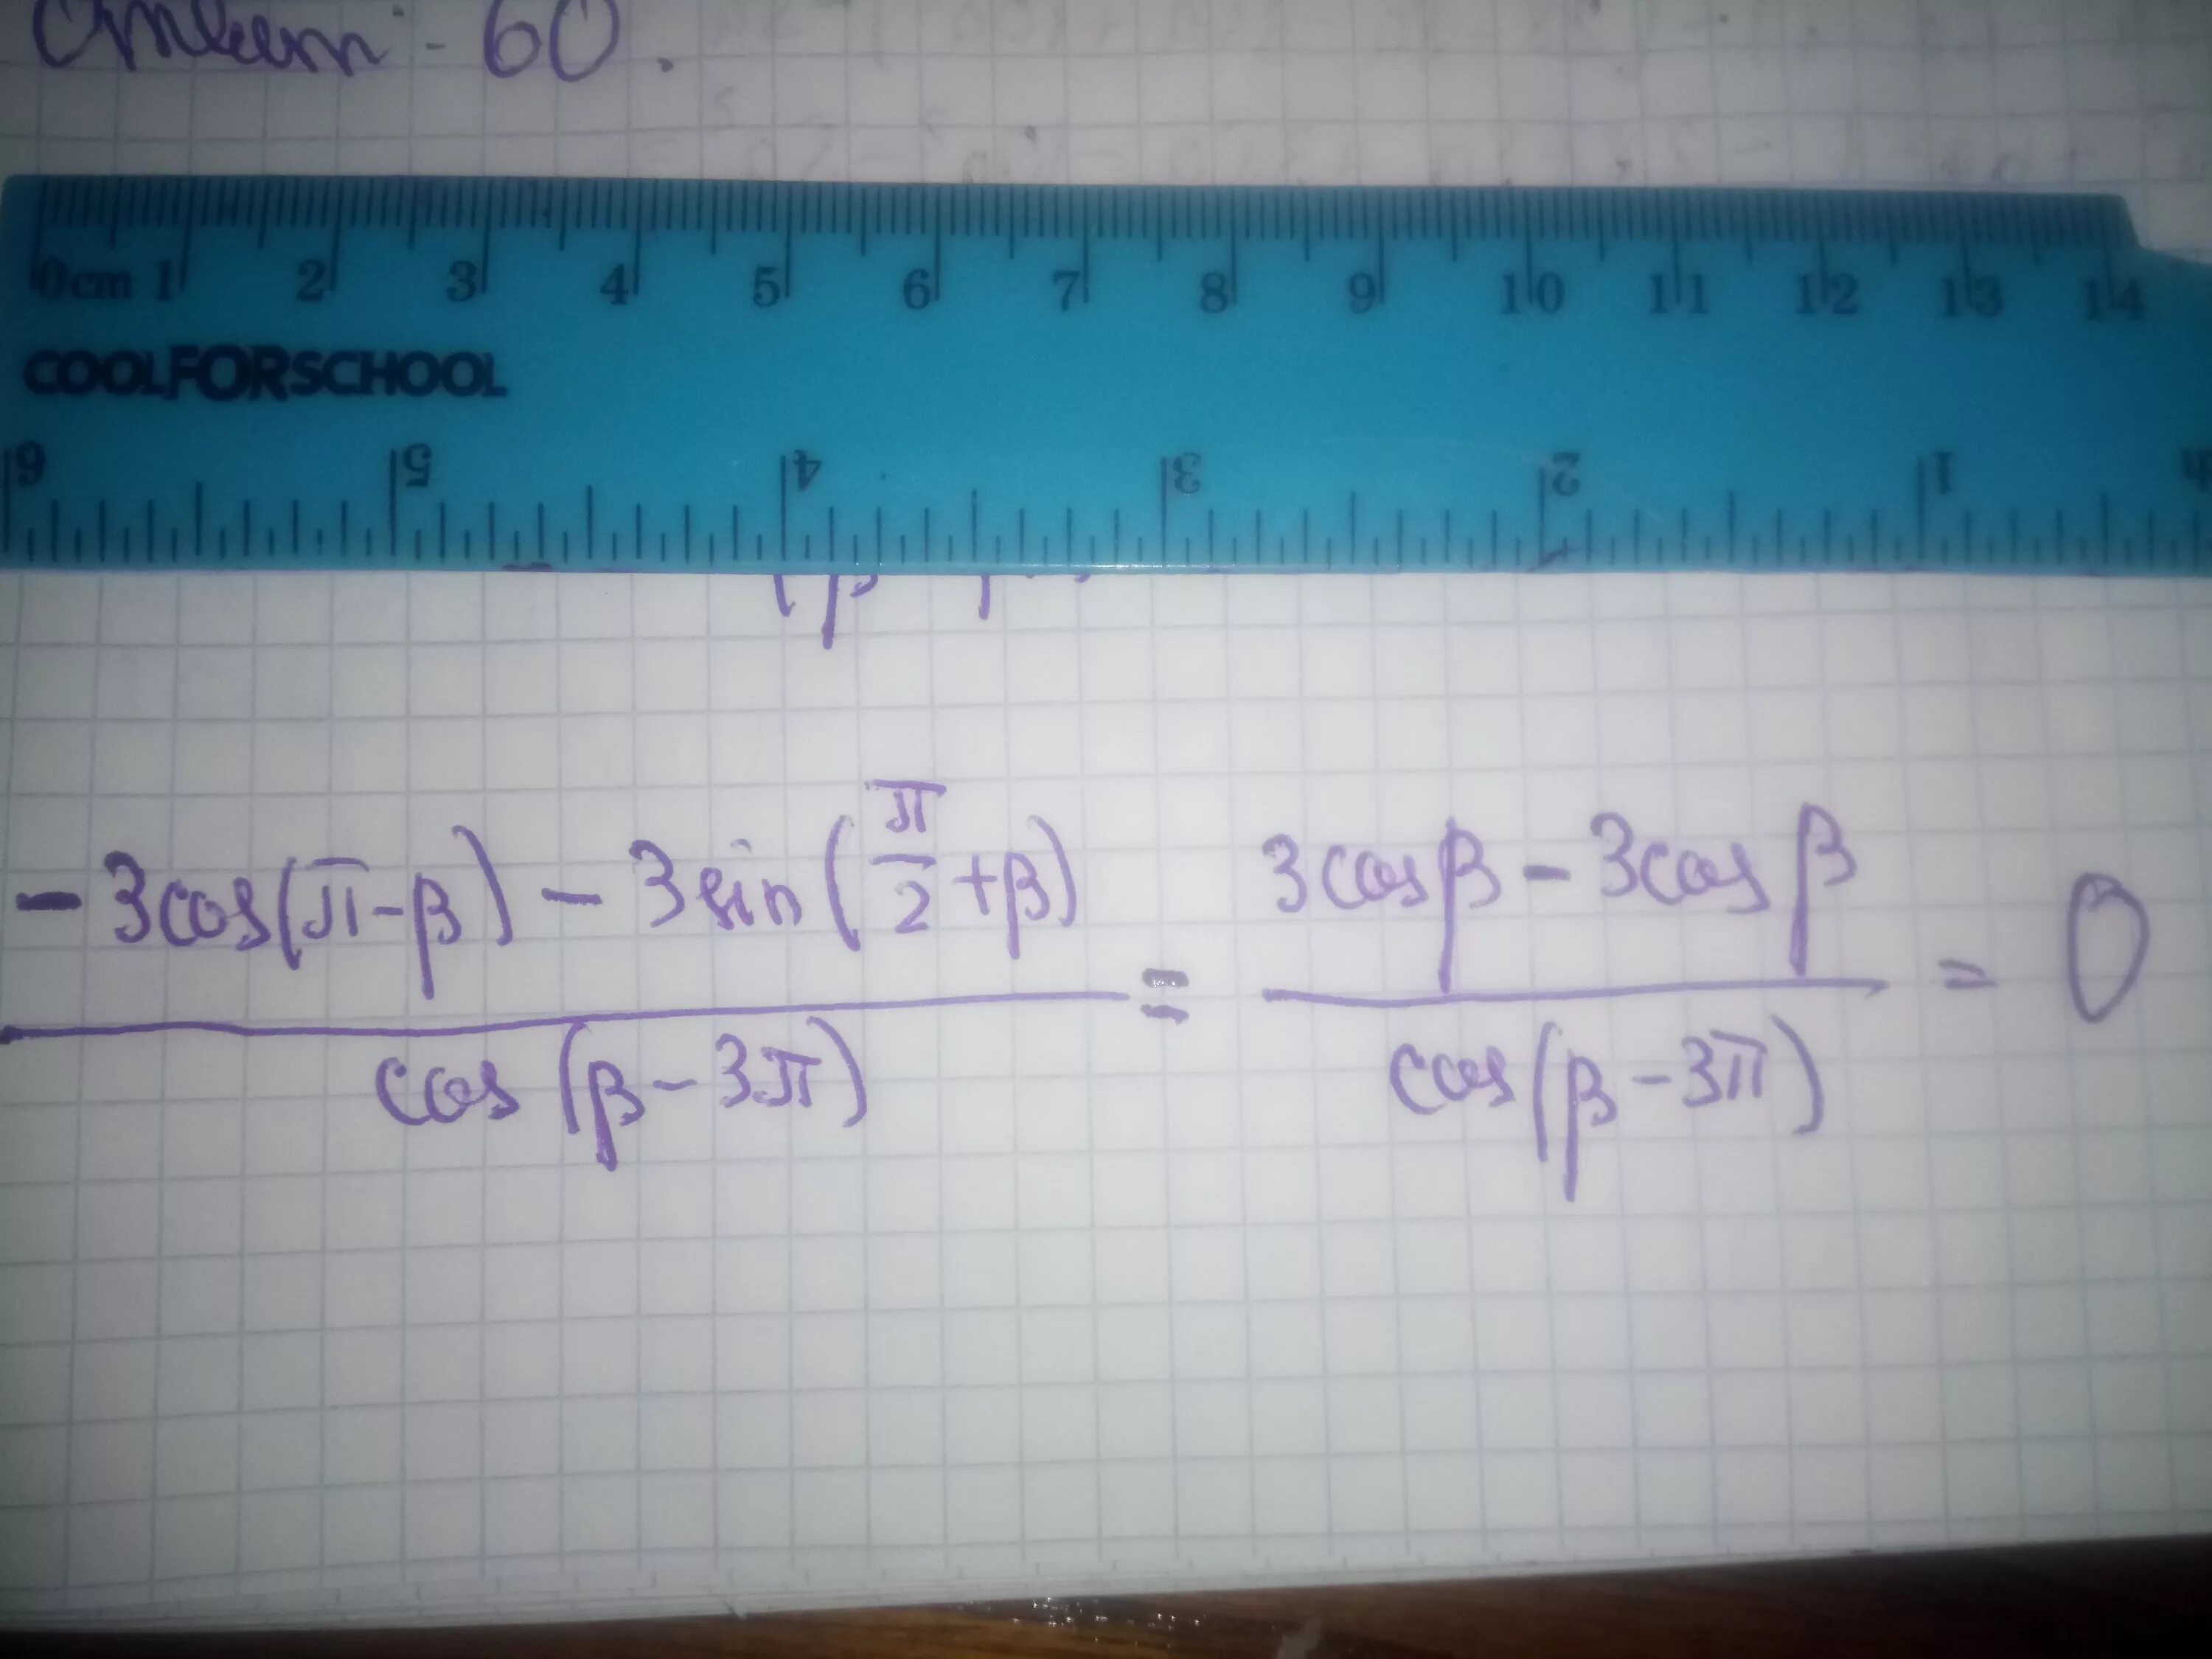 Ответ: -60.
0cm 1 2 3 4 5 6 7 8 9 10 11 12 13 14
COOLFORSCHOOL
6 5 4 3 2 1
(-3cos(π-β) - 3sin(π/2+β))/cos(β-3π) = (3cosβ - 3cosβ)/cos(β-3π) = 0